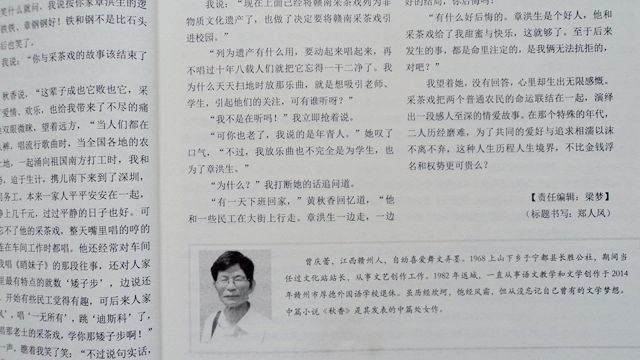 笑什么就问，我说按你家章洪生的逻
铁、章钢好！铁和钢不是比石头
后也笑了。
我说："你与采茶戏的故事该结束了
秋香说，"这辈子成也它败也它，采
了爱情、欢乐，也给我带来了不尽的痛
双眼微眯，望着远方，"当人们都在
裤，唱流行歌曲时，当全国各地的农
土地，一起涌向祖国南方打工时，我和
，迫于生计，携儿南下来到了深圳，
务工。本来一家人平平安安在一起，
上几千元，过过平静的日子也好。可
忘不了他的采茶戏，整天嘴里唱的哼的
连在车间工作时都唱。他还经常对车间
我唱《睄妹子》的那段往事，还对人家
里最有特点的就数'矮子步'，边说还
，开始有些民工觉得有趣，可后来人家
'，唱'一无所有'，跳'迪斯科'了，
唱那老土的采茶戏，学你那矮子步啊！"
一声，瞧着我笑了笑："不过说句实话，
我说："现在上面已经将赣南采茶戏列为非
物质文化遗产了，也做了决定要将赣南采茶戏引
进校园。"
"列为遗产有什么用，要动起来唱起来，再
不唱过十年八载人们就把它忘得一干二净了。我
为什么天天扫地时放那乐曲，就是想吸引老师、
学生，引起他们的关注，可有谁听呀？"
"我不是在听吗！"我立即抢着说。
"可你也老了，我说的是年青人。"她叹了
口气，"不过，我放乐曲也不完全是为学生，也
为了章洪生。"
"为什么？"我打断她的话追问道。
"有一天下班回家，"黄秋香回忆道，"他
和一些民工在大街上行走。章洪生一边走，一边
的结局，你后悔吗？"
"有什么好后悔的。章洪生是个好人，他和
采茶戏给了我甜蜜与快乐，这就够了。至于后来
发生的事，都是命里注定的，是我俩无法抗拒的，
对吧？"
我望着她，没有回答，心里却生出无限感慨。
采茶戏把两个普通农民的命运联结在一起，演绎
出一段感人至深的情爱故事。在那个特殊的年代，
二人历经磨难，为了共同的爱好与追求相濡以沫
不离不弃。这种人生历程人生境界，不比金钱浮
名和权势更可贵么？
【责任编辑：梁梦】
（标题书写：郑人风）
曾庆蕾，江西赣州人，自幼喜爱舞文弄墨。1968 上山下乡于宁都县长胜公社，期间当
任过文化站站长、从事文艺创作工作。1982 年返城，一直从事语文教学和文学创作于 2014
年赣州市厚德外国语学校退休。虽历经坎坷，饱经风霜，但从没忘记自己曾有的文学梦想。
中篇小说《秋香》是其发表的中篇处女作。